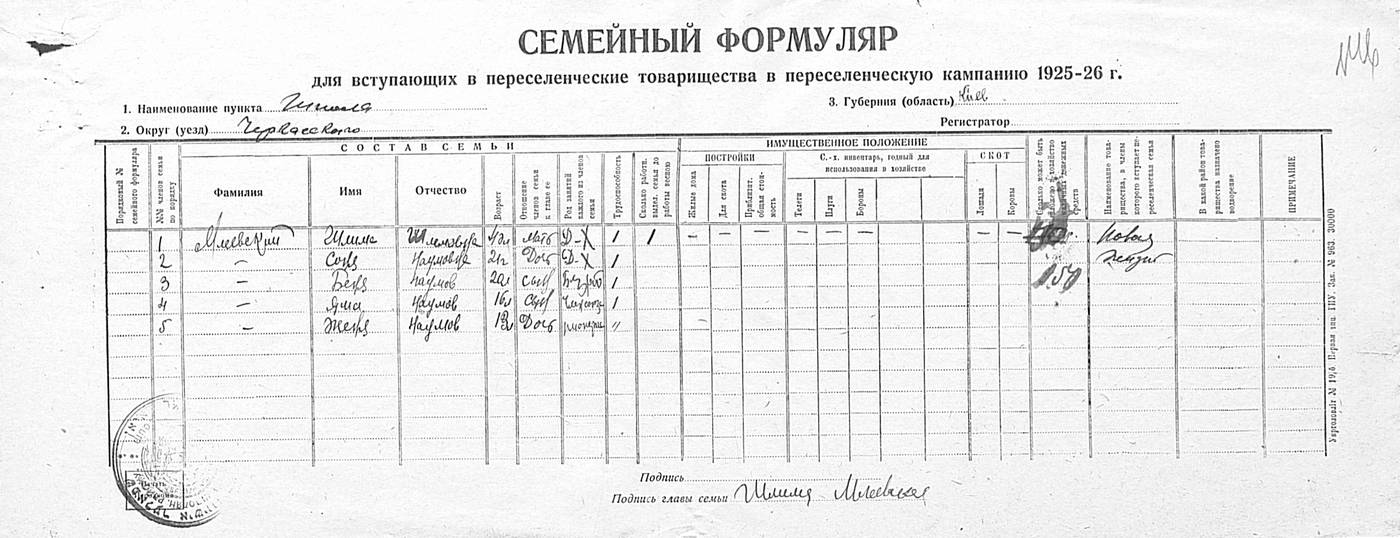 СЕМЕЙНЫЙ ФОРМУЛЯР
для вступающих в переселенческие товарищества в переселенческую кампанию 1925-26 г.
1. Наименование пункта Шпола
3. Губерния (область) Киев
2. Округ (уезд) Черкасского
Регистратор
СОСТАВ СЕМЬИ
ИМУЩЕСТВЕННОЕ ПОЛОЖЕНИЕ
Порядковый № семейного формуляра
№№ членов семьи по порядку
Фамилия
Имя
Отчество
Возраст
Отношение членов семьи к главе ее
Род занятий каждого из членов семьи
Трудоспособность
Сколько работн. выдел. семья до работы весною
ПОСТРОЙКИ
Жилые дома
Для скота
Приблизит. общая стоимость
С.-х. инвентарь, годный для использования в хозяйстве
Телеги
Плуги
Бороны
СКОТ
Лошади
Коровы
Сколько может быть хозяйство денежных средств
Наименование товарищества, в члены которого вступает переселенческая семья
В какой район товарищества назначено водворение
ПРИМЕЧАНИЕ
1 Млеевский Шлима 42л Мать Д-Х 1 1 — — — — — — — — Новая
2 — Соня Наумовна Доч Д-Х 1
3 — Беня Наумов 20л сын 1 150
4 — Яша Наумов 16л Сын 1
5 — Женя Наумов 13л Доч пионерка "
Подпись
Подпись главы семьи Шлима Млеевская
Укрголовліт № 19,б. Перша зап. ГПУ. Зак. № 963. 30000